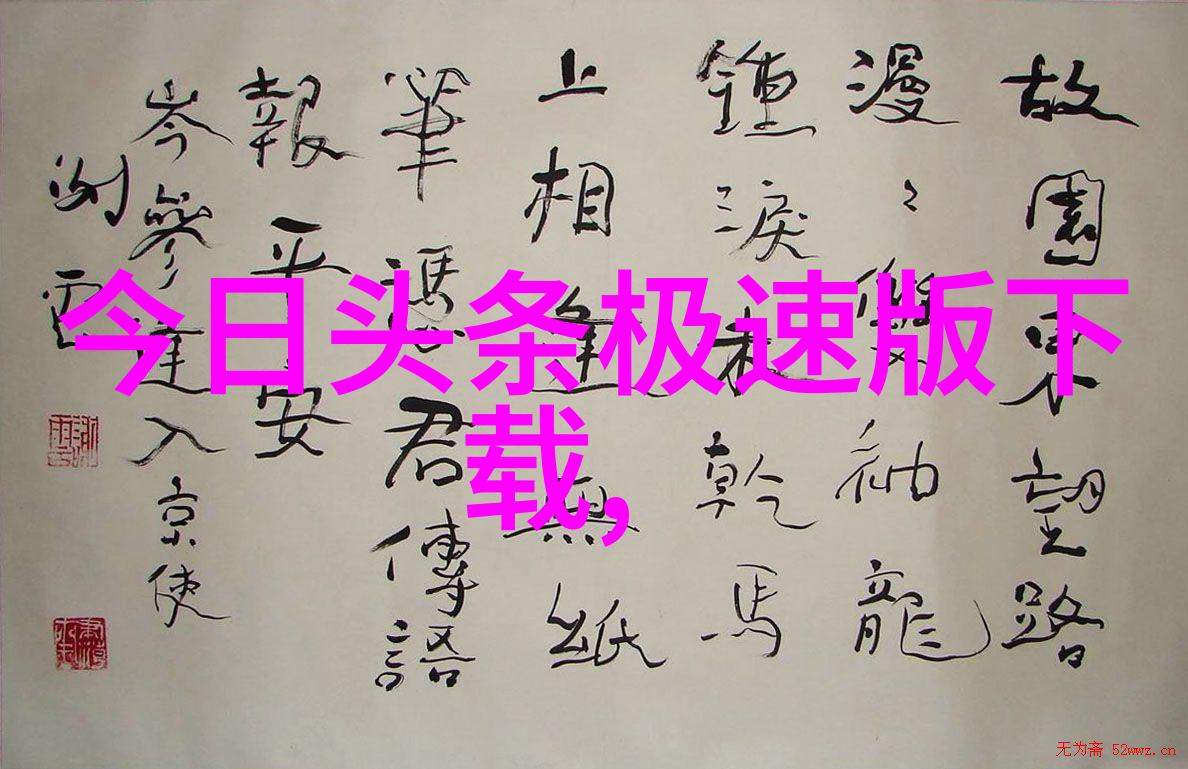 故園東望路
漫々雙袖龍
鍾淚未乾馬
上相逢無紙
筆憑君傳語
報平安
岑參逢入京使
今日头条极速版下
载,
无为斋 52wwz.cn